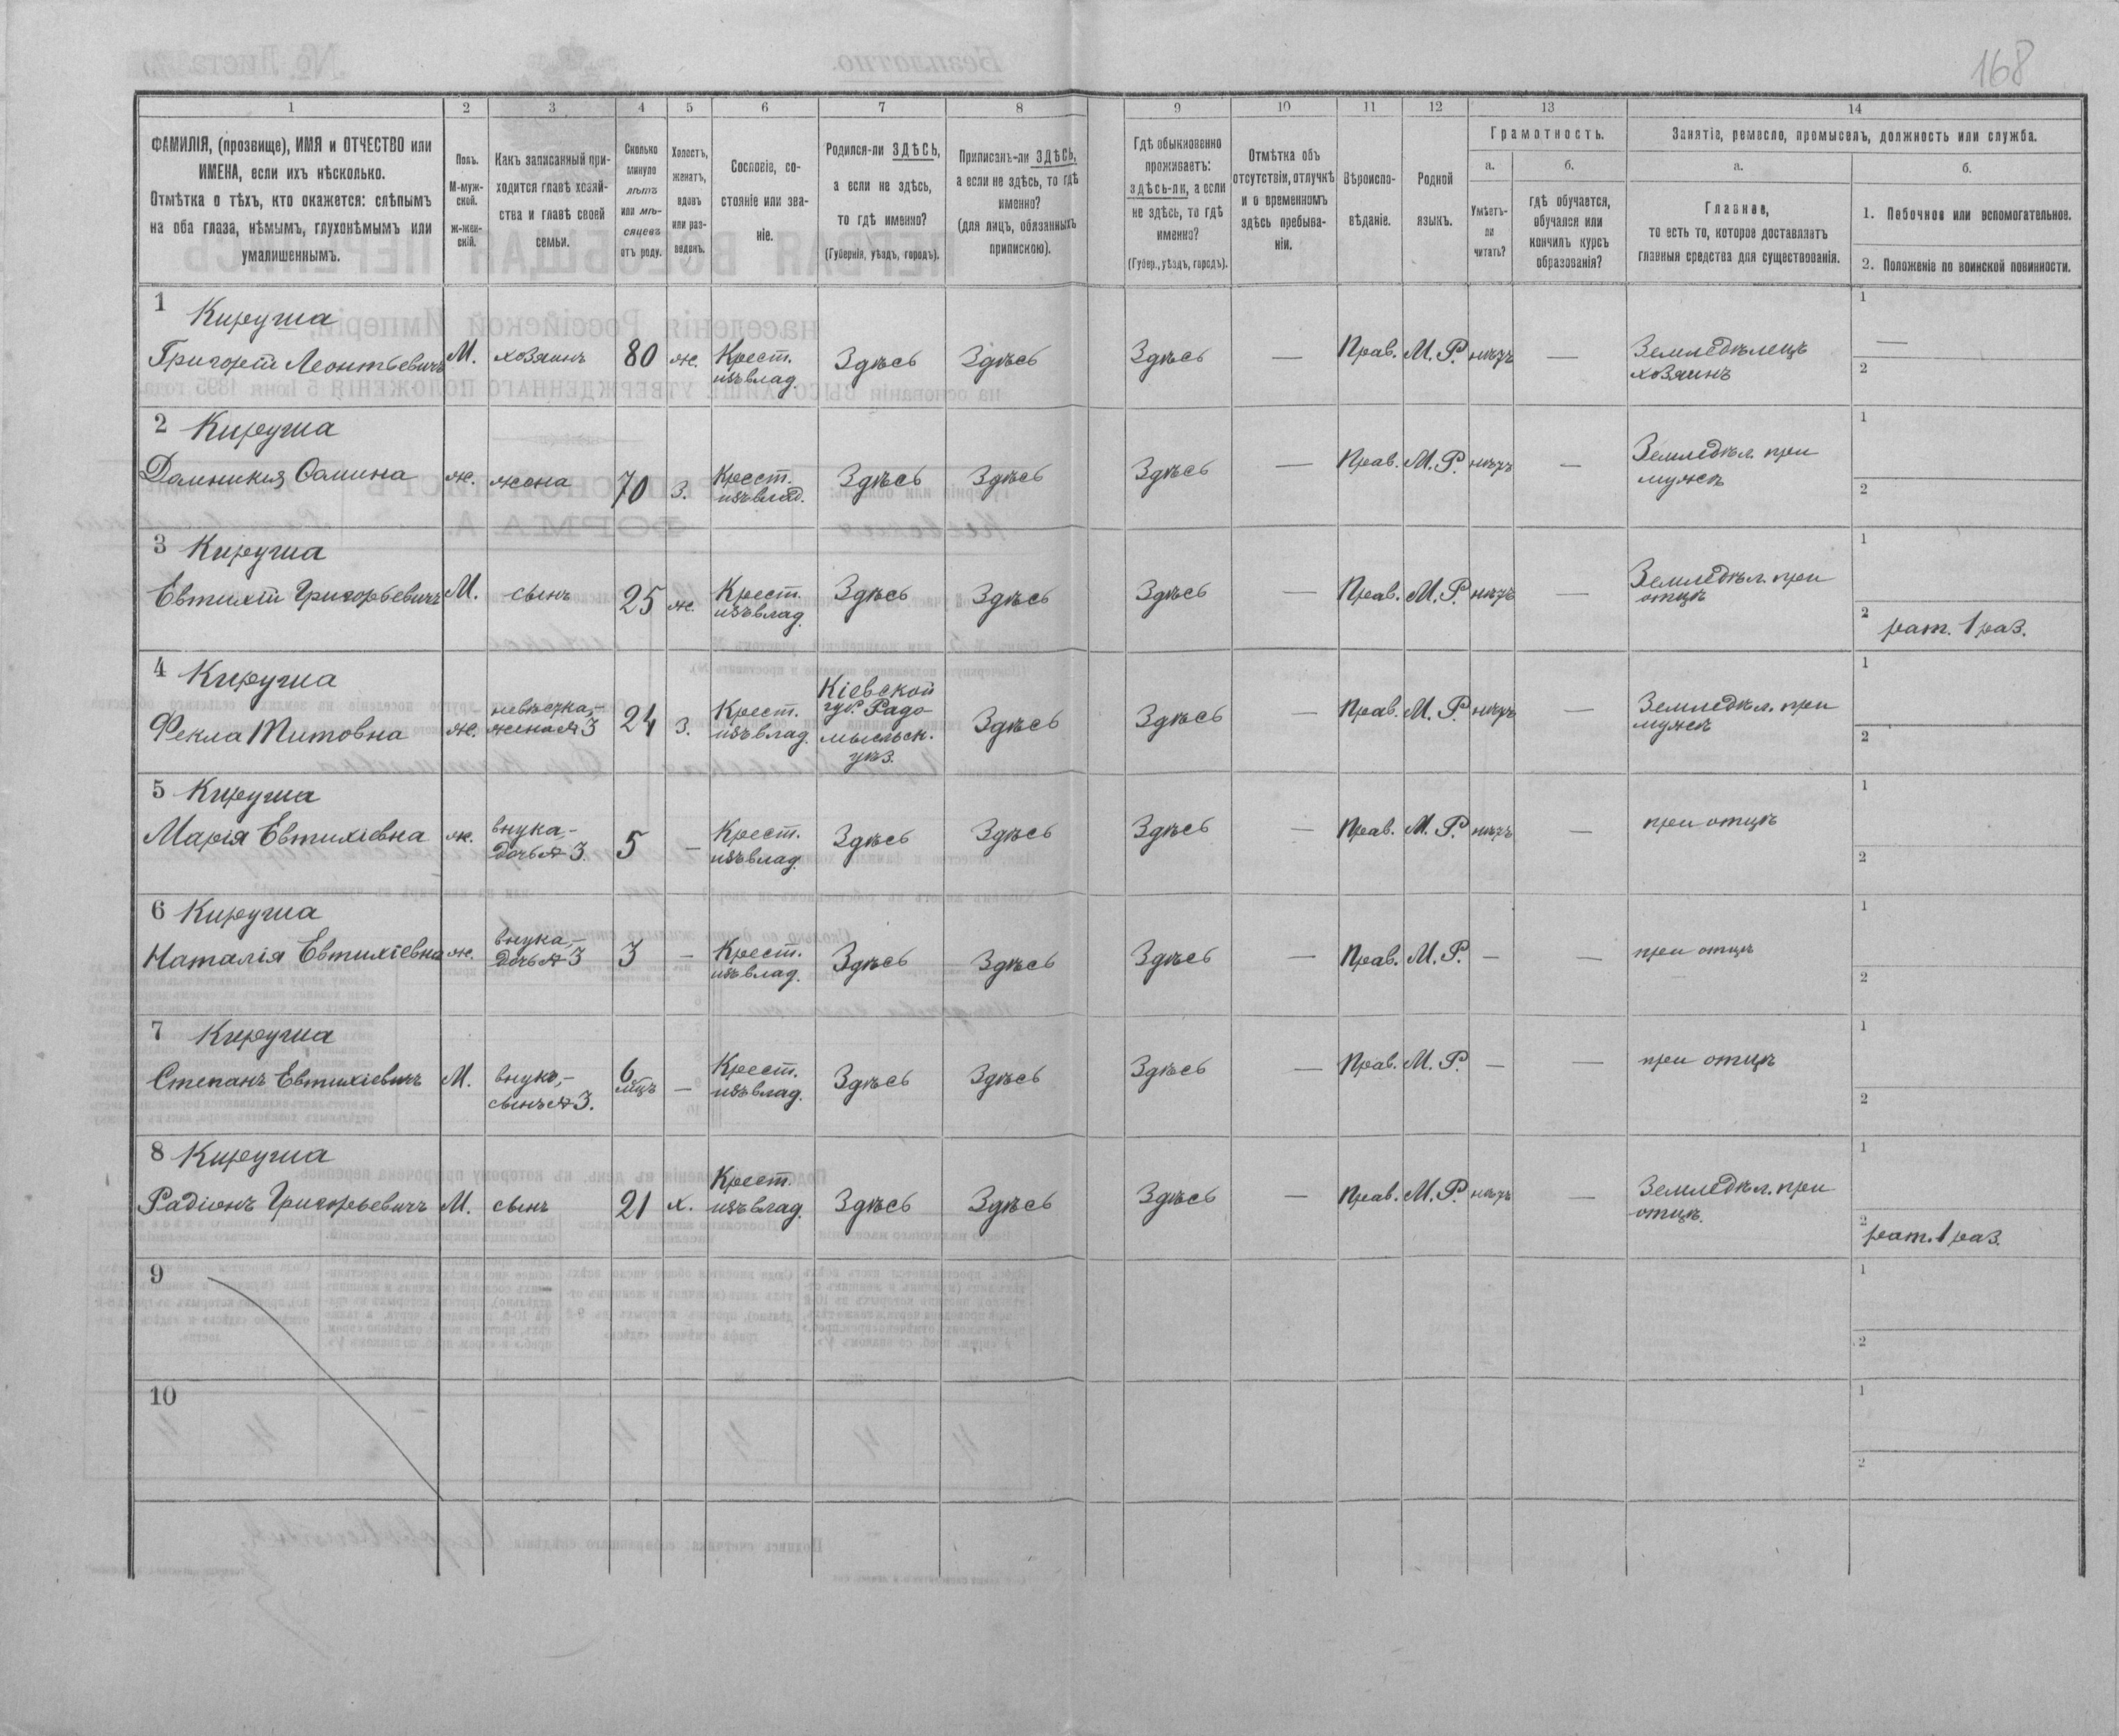 168
1 2 3 4 5 6 7 8 9 10 11 12 13 14
ФАМИЛІЯ, (прозвище), ИМЯ и ОТЧЕСТВО или
ИМЕНА, если ихъ нѣсколько.
Отмѣтка о тѣхъ, кто окажется: слѣпымъ
на оба глаза, нѣмымъ, глухонѣмымъ или
умалишеннымъ.
Полъ.
М-муж-
ской.
ж-жен-
скій.
Какъ записанный при-
ходится главѣ хозяй-
ства и главѣ своей
семьи.
Сколько
минуло
лѣтъ
или мѣ-
сяцевъ
отъ роду.
Холостъ,
женатъ,
вдовъ
или раз-
веденъ.
Сословіе, со-
стояніе или зва-
ніе.
Родился-ли ЗДѢСЬ,
а если не здѣсь,
то гдѣ именно?
(Губернія, уѣздъ, городъ).
Приписанъ-ли ЗДѢСЬ,
а если не здѣсь, то гдѣ
именно?
(для лицъ, обязанныхъ
припискою).
Гдѣ обыкновенно
проживаетъ:
здѣсь-ли, а если
не здѣсь, то гдѣ
именно?
(Губер., уѣздъ, городъ).
Отмѣтка объ
отсутствіи, отлучкѣ
и о временномъ
здѣсь пребыва-
ніи.
Вѣроиспо-
вѣданіе.
Родной
языкъ.
Грамотность.
а.
Умѣетъ-
ли
читать?
б.
гдѣ обучается,
обучался или
кончилъ курсъ
образованія?
Занятіе, ремесло, промыселъ, должность или служба.
а.
Главное,
то есть то, которое доставляетъ
главныя средства для существованія.
б.
1. Побочное или вспомогательное.
2. Положеніе по воинской повинности.
1 Кируша
Григорій Леонтьевичъ М. хозяинъ 80 ж. Крест. Здѣсь Здѣсь Здѣсь — Прав. М.Р. нѣтъ — Земледѣлецъ 1 —
изъ влад. хозяинъ 2
2 Кируша
Домникія Фомина ж. жена 70 З. Крест. Здѣсь Здѣсь Здѣсь — Прав. М.Р. нѣтъ — Земледѣл. при 1
изъ влад. мужѣ 2
3 Кируша
Евтихій Григорьевичъ М. сынъ 25 ж. Крест. Здѣсь Здѣсь Здѣсь — Прав. М.Р. нѣтъ — Земледѣл. при 1
изъ влад. отцѣ 2 рат. 1 раз.
4 Кируша
Фекла Титовна ж. невѣстка,-
жена № 3 24 З. Крест.
изъ влад. Кіевской
губ. Радо-
мысльск.
уѣз. Здѣсь Здѣсь — Прав. М.Р. нѣтъ — Земледѣл. при 1
мужѣ 2
5 Кируша
Марія Евтихіевна ж. внука-
дочь № 3. 5 — Крест.
изъ влад. Здѣсь Здѣсь Здѣсь — Прав. М.Р. нѣтъ — при отцѣ 1
2
6 Кируша
Наталія Евтихіевна ж. внука,-
дочь № 3 3 — Крест.
изъ влад. Здѣсь Здѣсь Здѣсь — Прав. М.Р. — — при отцѣ 1
2
7 Кируша
Степанъ Евтихіевичъ М. внукъ,-
сынъ № 3. 6
мцъ — Крест.
изъ влад. Здѣсь Здѣсь Здѣсь — Прав. М.Р. — — при отцѣ 1
2
8 Кируша
Радіонъ Григорьевичъ М. сынъ 21 х. Крест.
изъ влад. Здѣсь Здѣсь Здѣсь — Прав. М.Р. нѣтъ — Земледѣл. при 1
отцѣ. 2 рат. 1 раз.
9 1
2
10 1
2